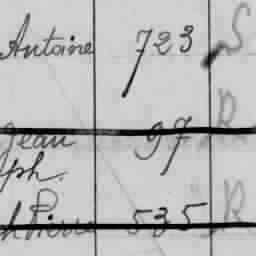 Antoine 723 S
Jean 97 R
ph.
h Pierre 535 R